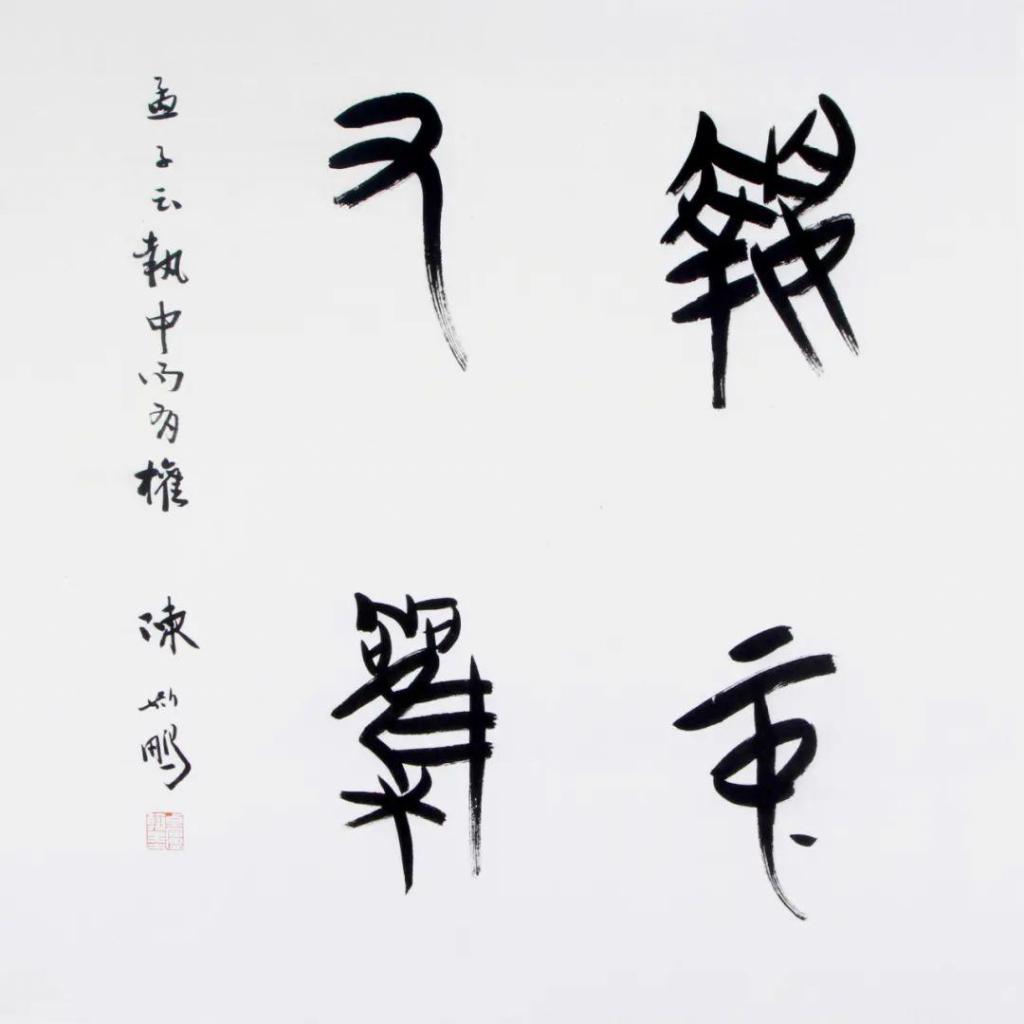 執中
又權
孟子云執中而有權 陳斯鵬